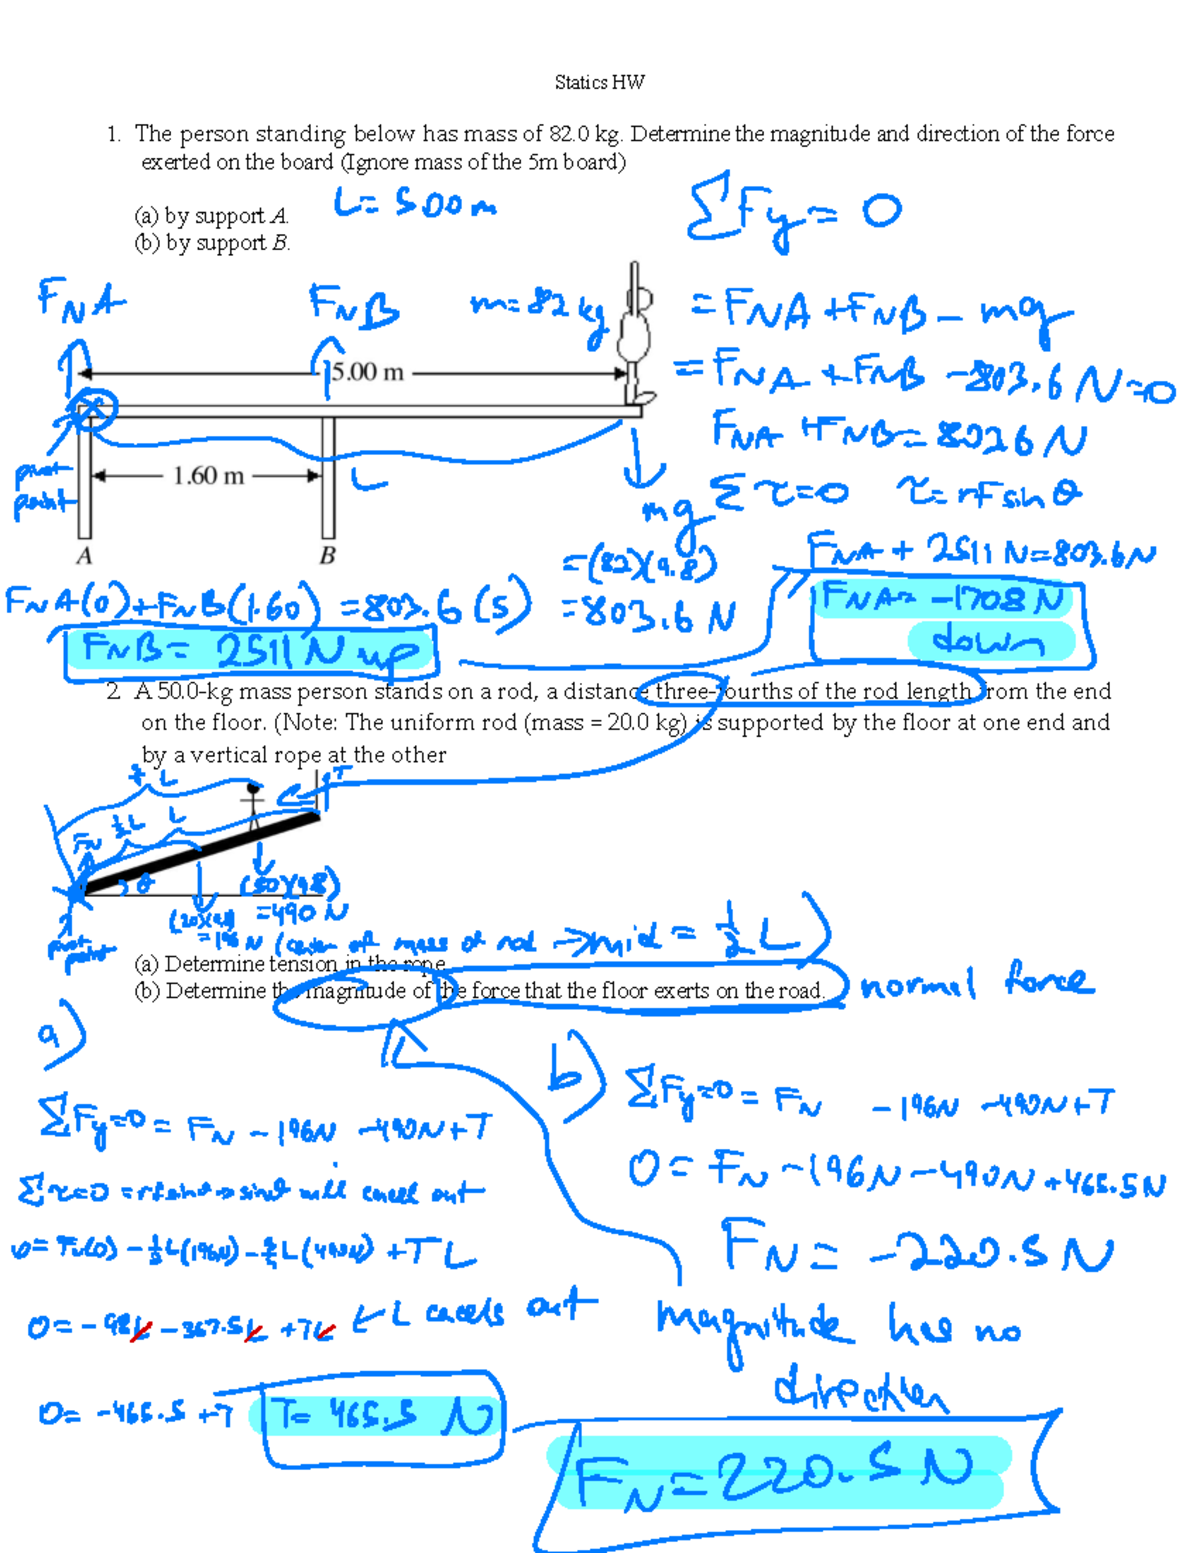 Statics HW
1. The person standing below has mass of 82.0 kg. Determine the magnitude and direction of the force
exerted on the board (Ignore mass of the 5m board)
L= 5.00 m
(a) by support A.
(b) by support B.
ΣFy = 0
FNA
FNB
m=82 kg
= FNA + FNB - mg
5.00 m
= FNA + FNB - 803.6 N=0
FNA + FNB = 8036 N
1.60 m
L
pivot
point
mg
Στ=0 τ= rFsin θ
A
B
=(82)(9.8)
=803.6 N
FNA + 2511 N=803.6N
FNA(0)+FNB(1.60) =803.6(5)
FNA= -1708 N
down
FNB= 2511 N up
2. A 50.0-kg mass person stands on a rod, a distance three-fourths of the rod length from the end
on the floor. (Note: The uniform rod (mass = 20.0 kg) is supported by the floor at one end and
by a vertical rope at the other
¾ L
T
½L
L
FN
θ
(50)(9.8)
=490 N
(20)(9.8)
=196 N (center of mass of rod → mid = ½ L)
pivot
point
(a) Determine tension in the rope
(b) Determine the magnitude of the force that the floor exerts on the road.
normal force
a)
ΣFy=0 = FN - 196N - 490N + T
Στ=0 = rFsinθ → sinθ will cancel out
0= FN(0) - ½L(196N) - ¾L(490N) + TL
0= - 98L - 367.5L + TL ← L cancels out
0= -465.5 +T
T= 465.5 N
b)
ΣFy=0 = FN - 196N - 490N + T
0= FN - 196N - 490N + 465.5N
FN= -220.5 N
magnitude has no
direction
FN=220.5 N